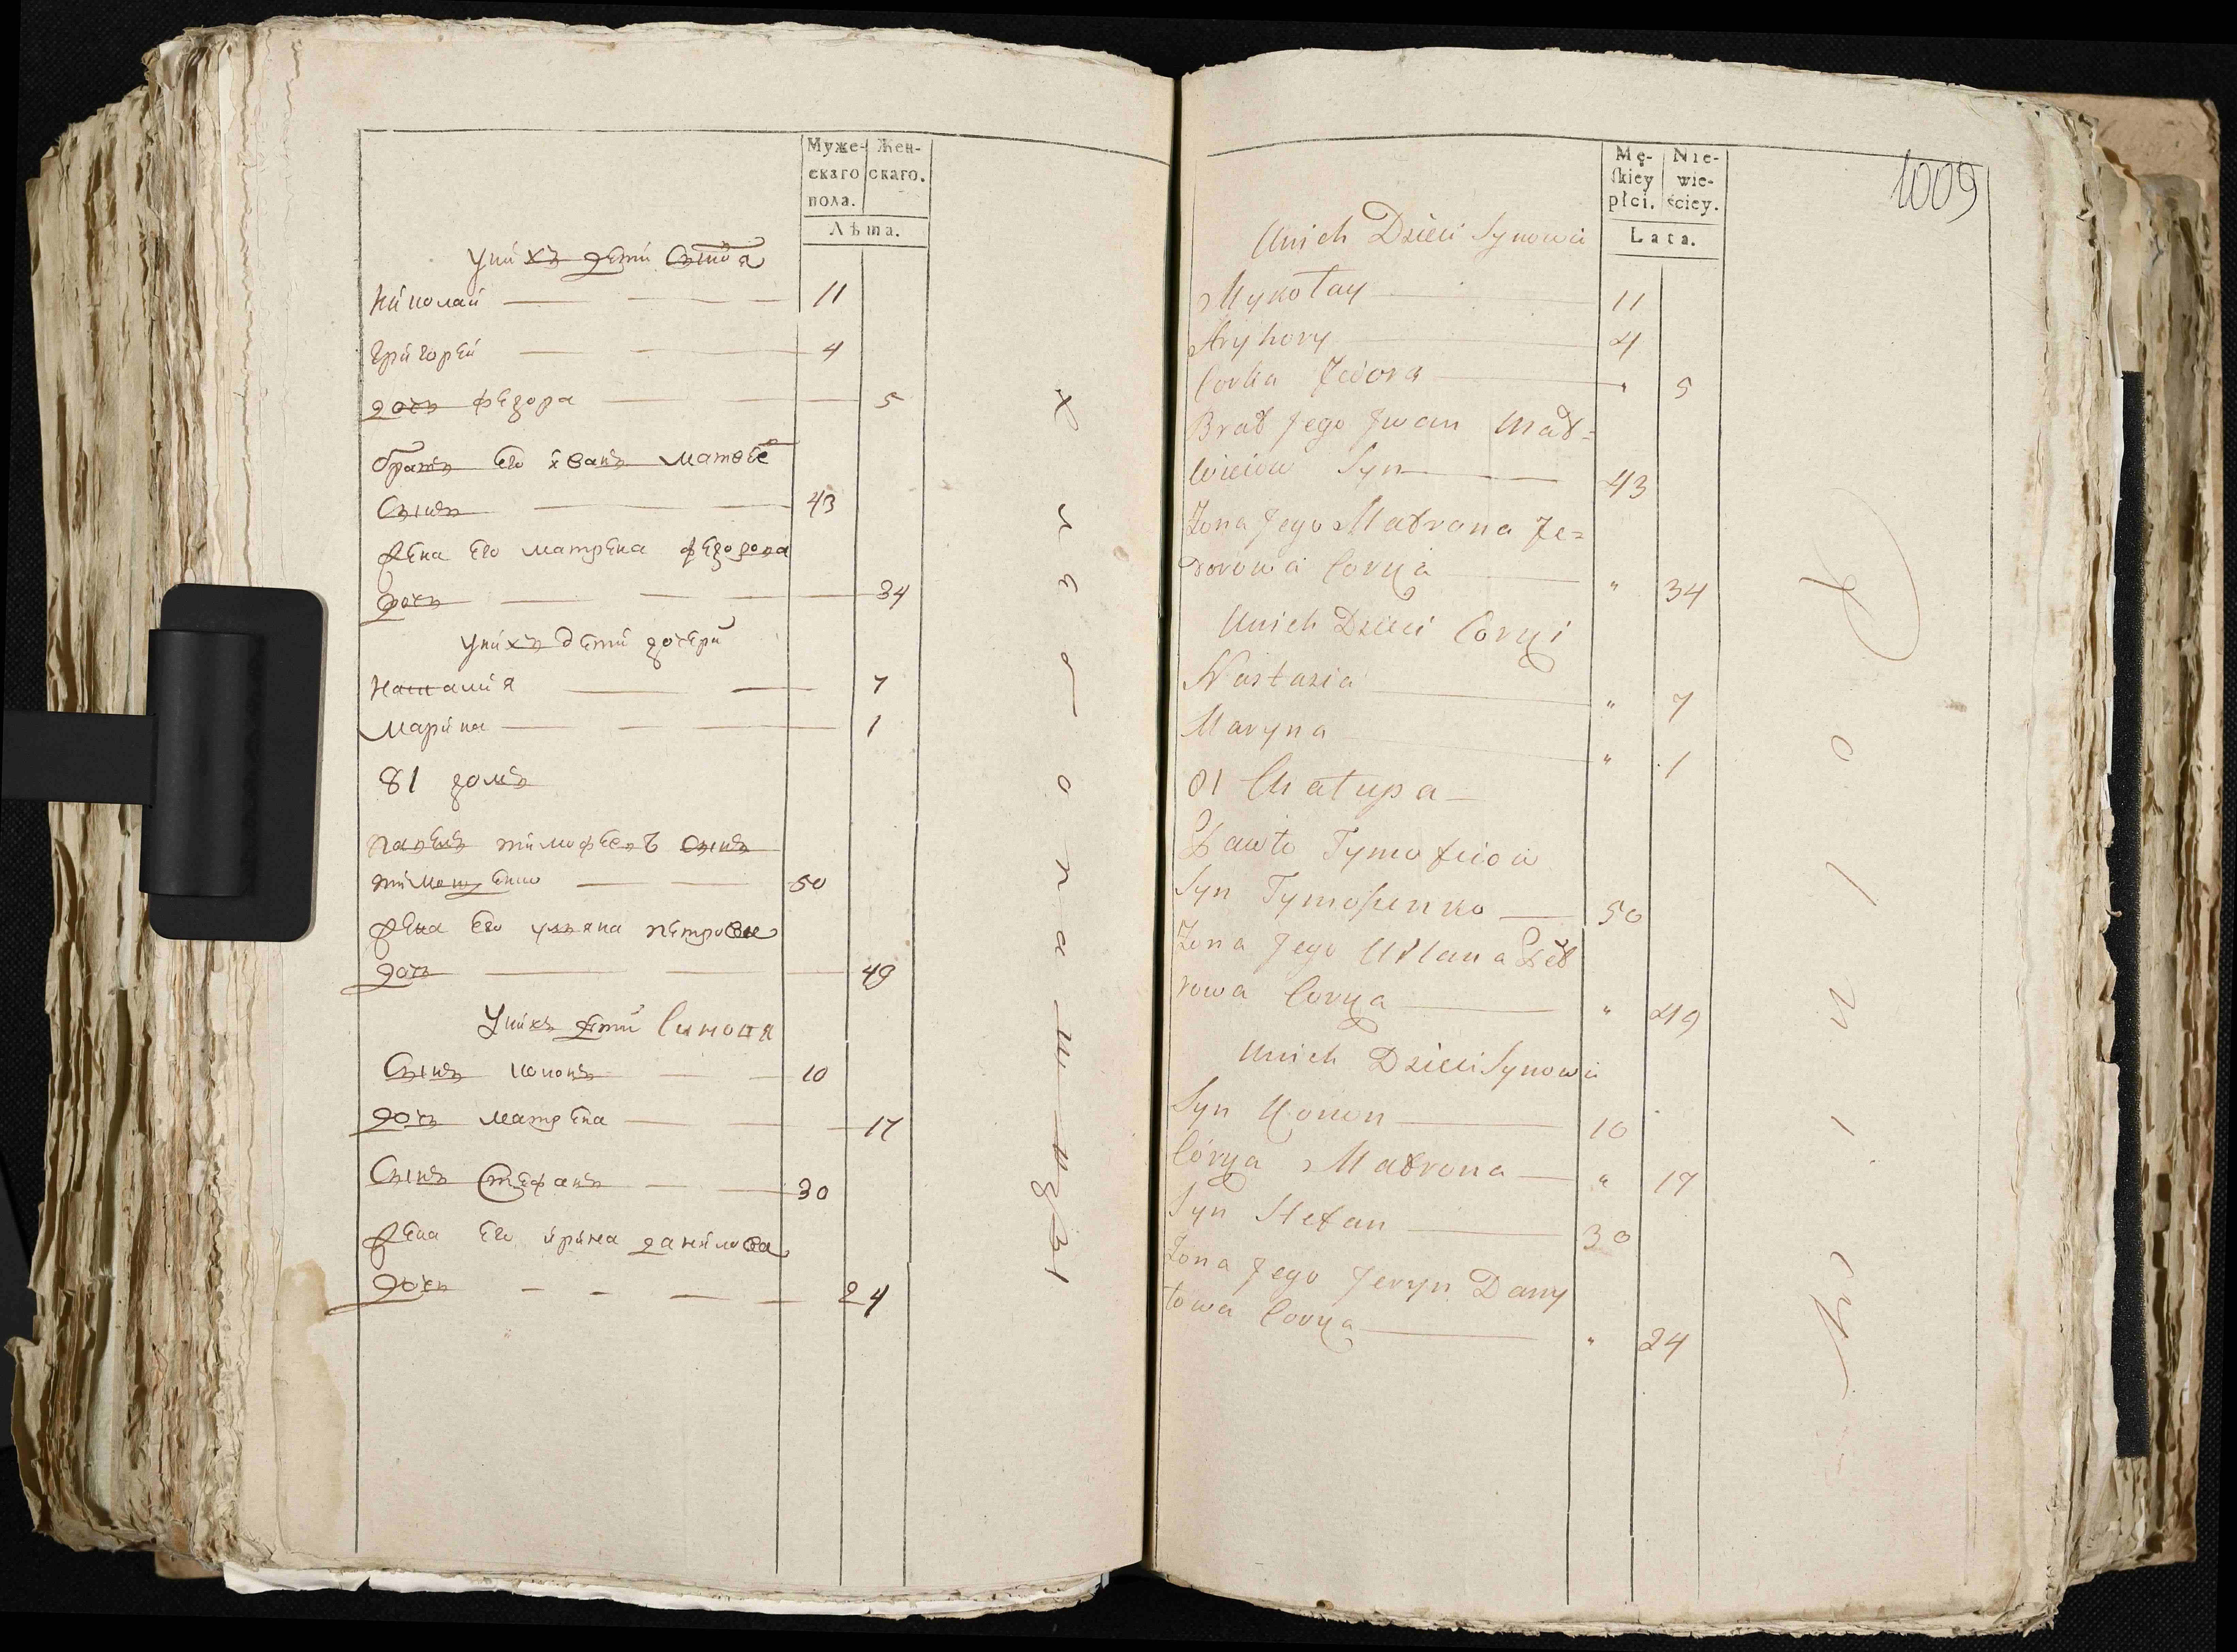 Муже-
скаго
пола.
Жен-
скаго.
Лѣта.
Унихъ дети Синовя
Николай 11
Григорей 4
дочъ федора 5
братъ его иванъ матвѣе
Синъ 43
жена его матрена федорова
дочъ 34
Унихъ дети дочери
Наталия 7
Марина 1
81 домъ
павелъ тимофеевъ синъ
тимошенко 50
жена его ульяна петрова
дочъ 49
Унихъ дети Синовя
Синъ кононъ 10
дочъ матрена 17
Синъ Стефанъ 30
жена его ирина данилова
дочъ 24
хлебопашцы
1009
Mę-
skiey
płci.
Nie-
wie-
ściey.
Lata.
Unich Dzieci Synowie
Mykołay 11
Hryhory 4
Corka Fedora " 5
Brat Jego Iwan Mat=
wieiow Syn 43
Zona Jego Matrona Fe=
dorowa Corka " 34
Unich Dzieci Corki
Nastazia " 7
Maryna " 1
81 Chałupa
Pawło Tymofiiow
Syn Tymoszenko 50
Zona Jego Ulana Pet
rowa Corka " 49
Unich Dzieci Synowie
Syn Konon 10
Córka Matrona " 17
Syn Stefan 30
Zona Jego Jeryn Dany
łowa Corka " 24
Rolnicy